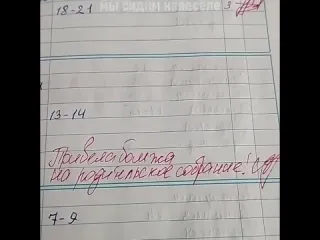 мы сидим навеселе
18-21
3
13-14
Привела бомжа
на родительское собрание!
7-9